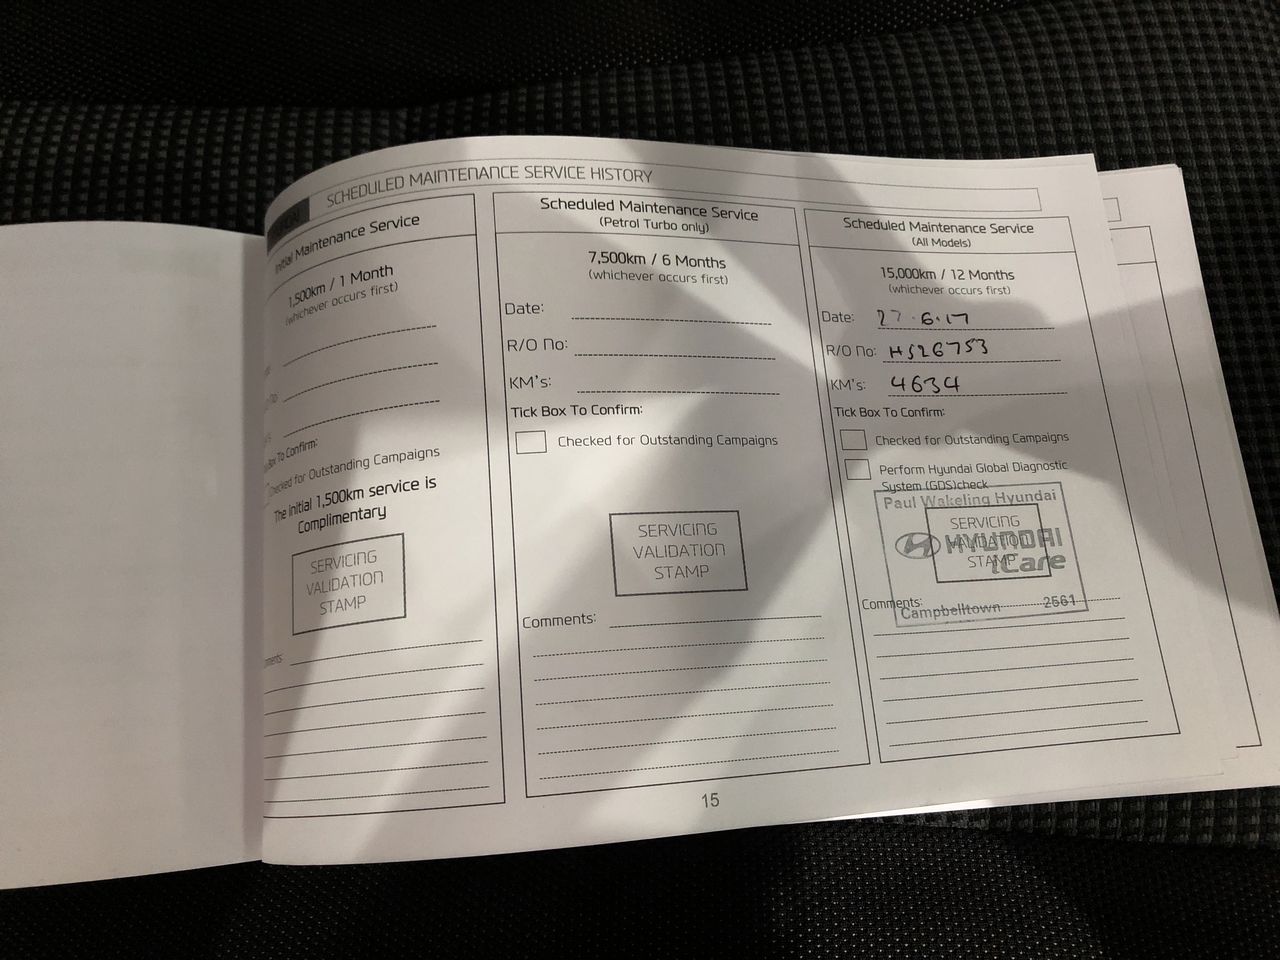 SCHEDULED MAINTENANCE SERVICE HISTORY
Initial Maintenance Service
1,500km / 1 Month
(whichever occurs first)
Box To Confirm:
Checked for Outstanding Campaigns
The initial 1,500km service is
Complimentary
SERVICING
VALIDATION
STAMP
Scheduled Maintenance Service
(Petrol Turbo only)
7,500km / 6 Months
(whichever occurs first)
Date:
R/O No:
KM's:
Tick Box To Confirm:
Checked for Outstanding Campaigns
SERVICING
VALIDATION
STAMP
Comments:
Scheduled Maintenance Service
(All Models)
15,000km / 12 Months
(whichever occurs first)
Date: 27.6.17
R/O No: HS26753
KM's: 4634
Tick Box To Confirm:
Checked for Outstanding Campaigns
Perform Hyundai Global Diagnostic
System (GDS)check
Paul Wakeling Hyundai
SERVICING
VALIDATION
STAMP
HYUNDAI
iCare
Comments:
Campbelltown 2561
15